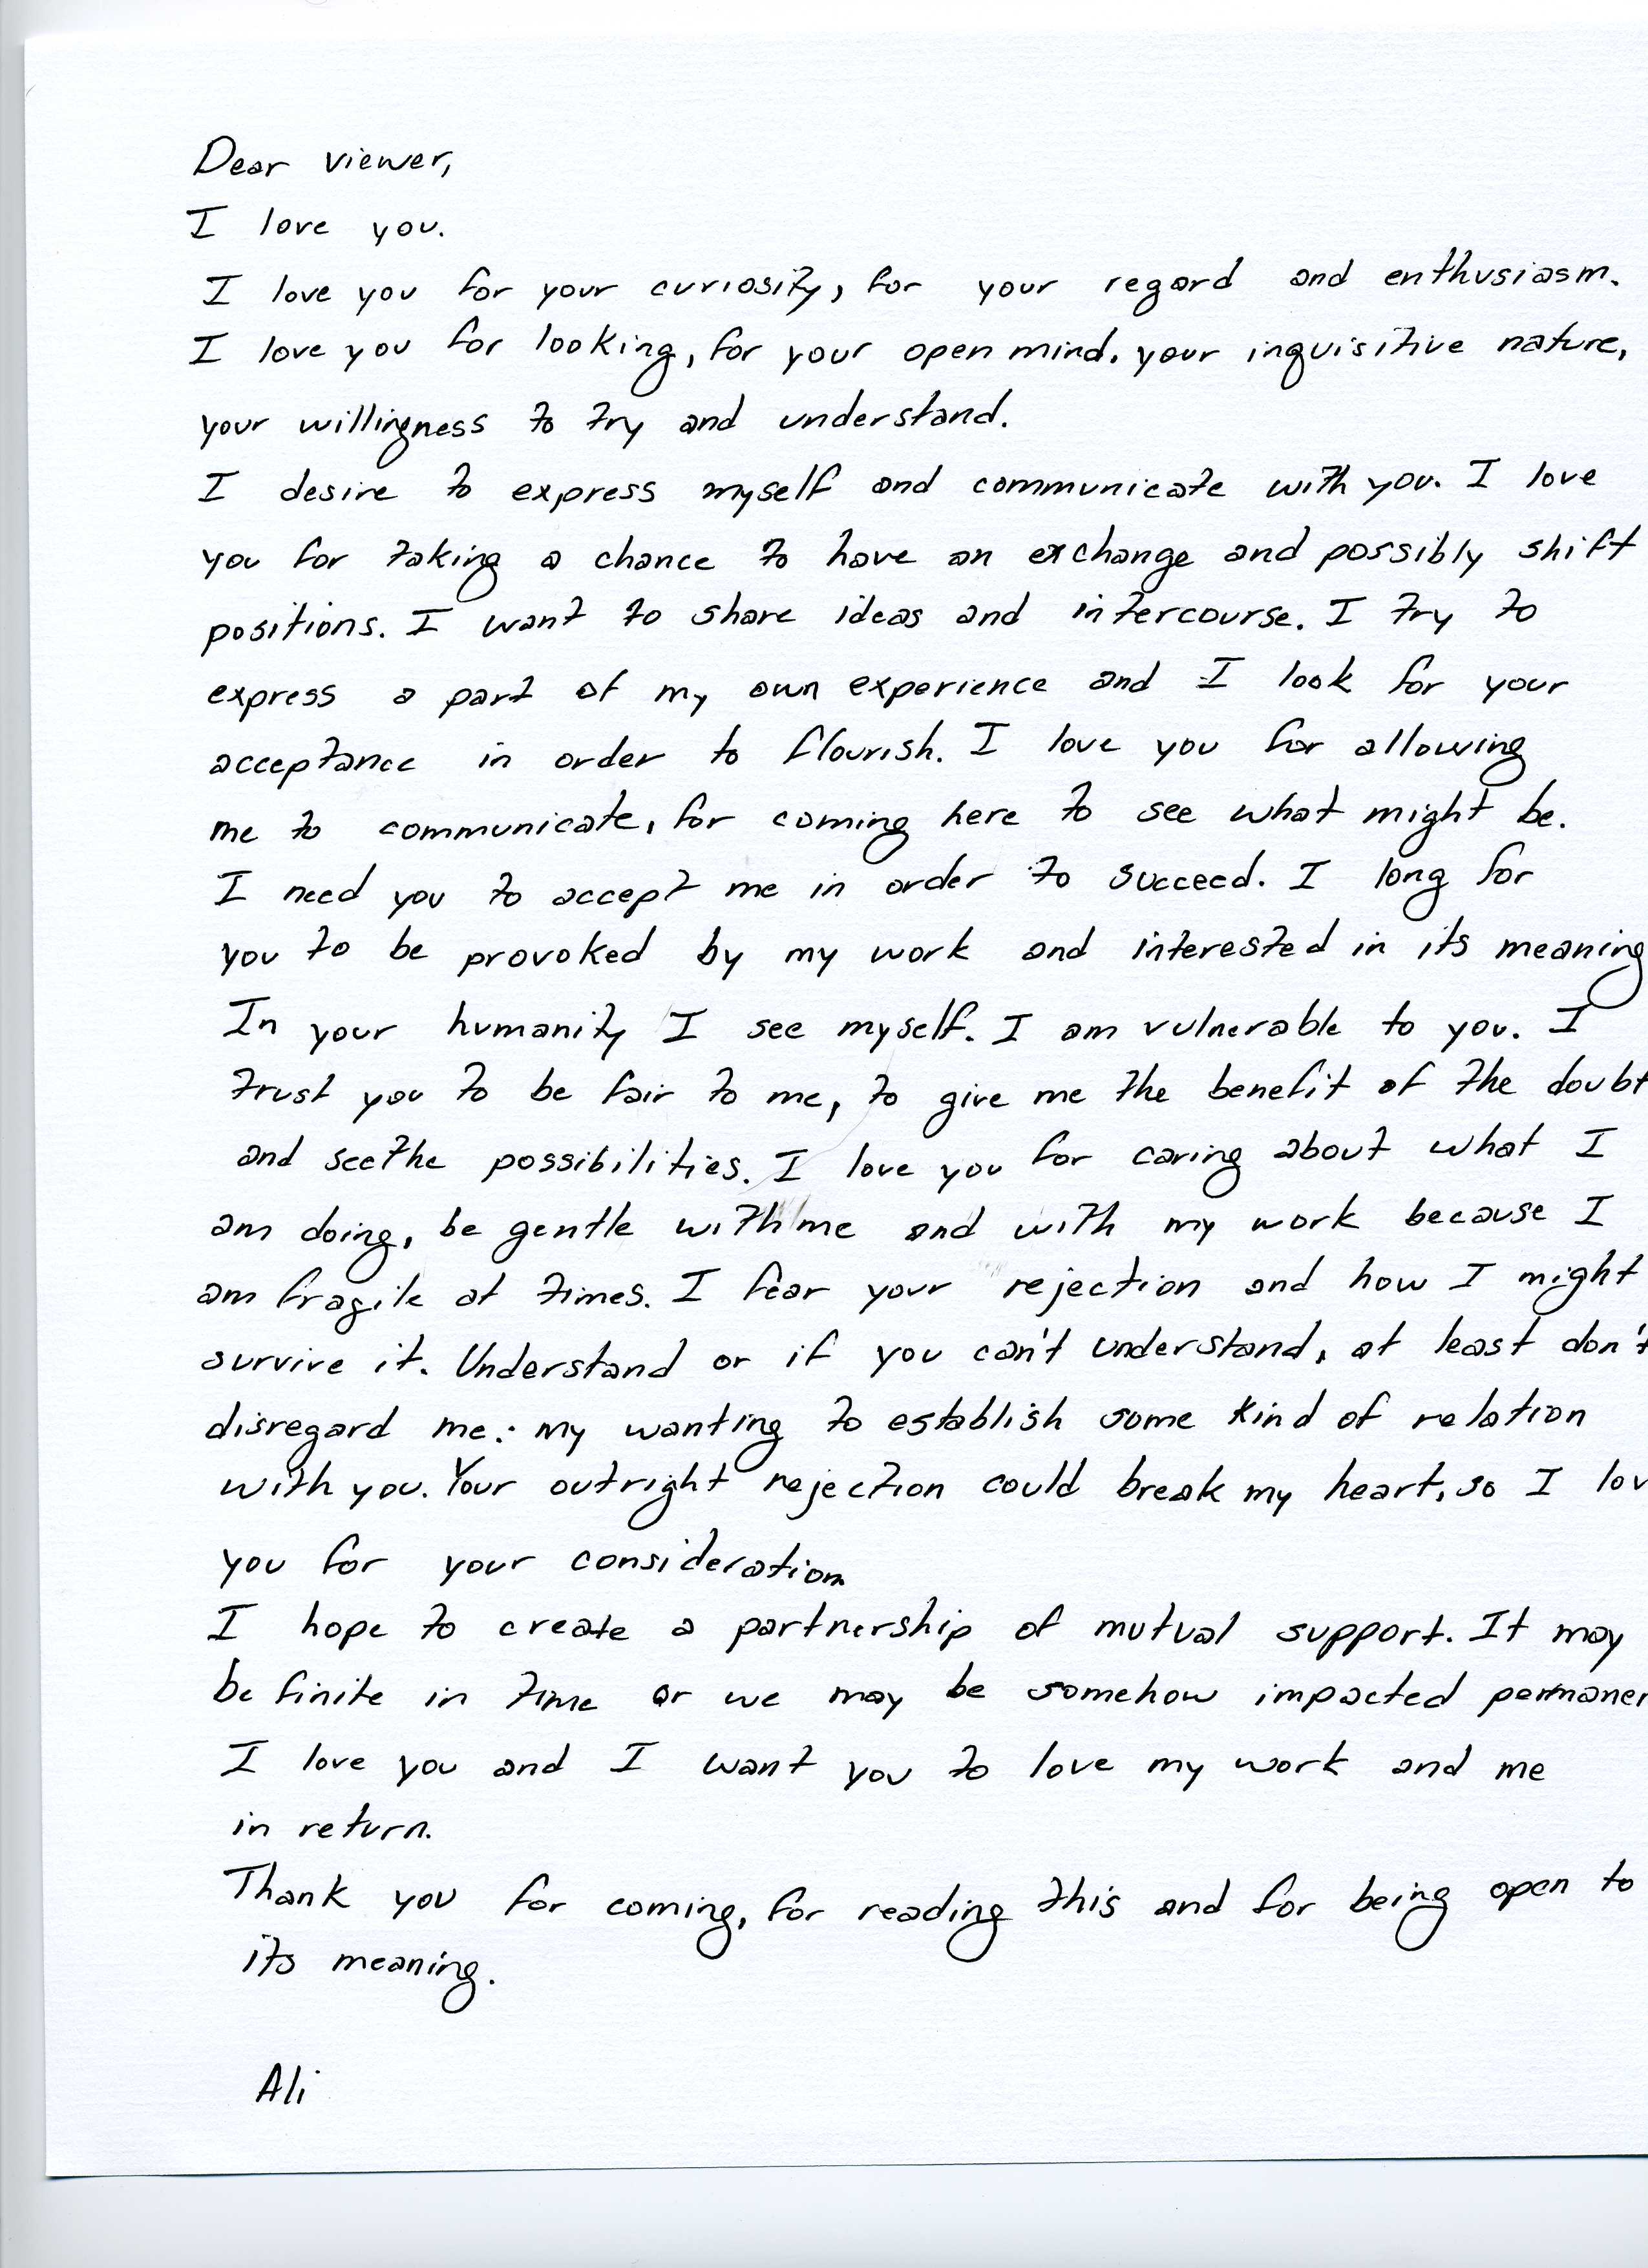 Dear viewer,
I love you.
I love you for your curiosity, for your regard and enthusiasm.
I love you for looking, for your open mind. your inquisitive nature,
your willingness to try and understand.
I desire to express myself and communicate with you. I love
you for taking a chance to have an exchange and possibly shift
positions. I want to share ideas and intercourse. I try to
express a part of my own experience and I look for your
acceptance in order to flourish. I love you for allowing
me to communicate, for coming here to see what might be.
I need you to accept me in order to succeed. I long for
you to be provoked by my work and interested in its meaning
In your humanity I see myself. I am vulnerable to you. I
trust you to be fair to me, to give me the benefit of the doubt
and see the possibilities. I love you for caring about what I
am doing, be gentle with me and with my work because I
am fragile at times. I fear your rejection and how I might
survive it. Understand or if you can't understand, at least don't
disregard me: my wanting to establish some kind of relation
with you. Your outright rejection could break my heart, so I lov
you for your consideration
I hope to create a partnership of mutual support. It may
be finite in time or we may be somehow impacted permanen
I love you and I want you to love my work and me
in return.
Thank you for coming, for reading this and for being open to
its meaning.
Ali